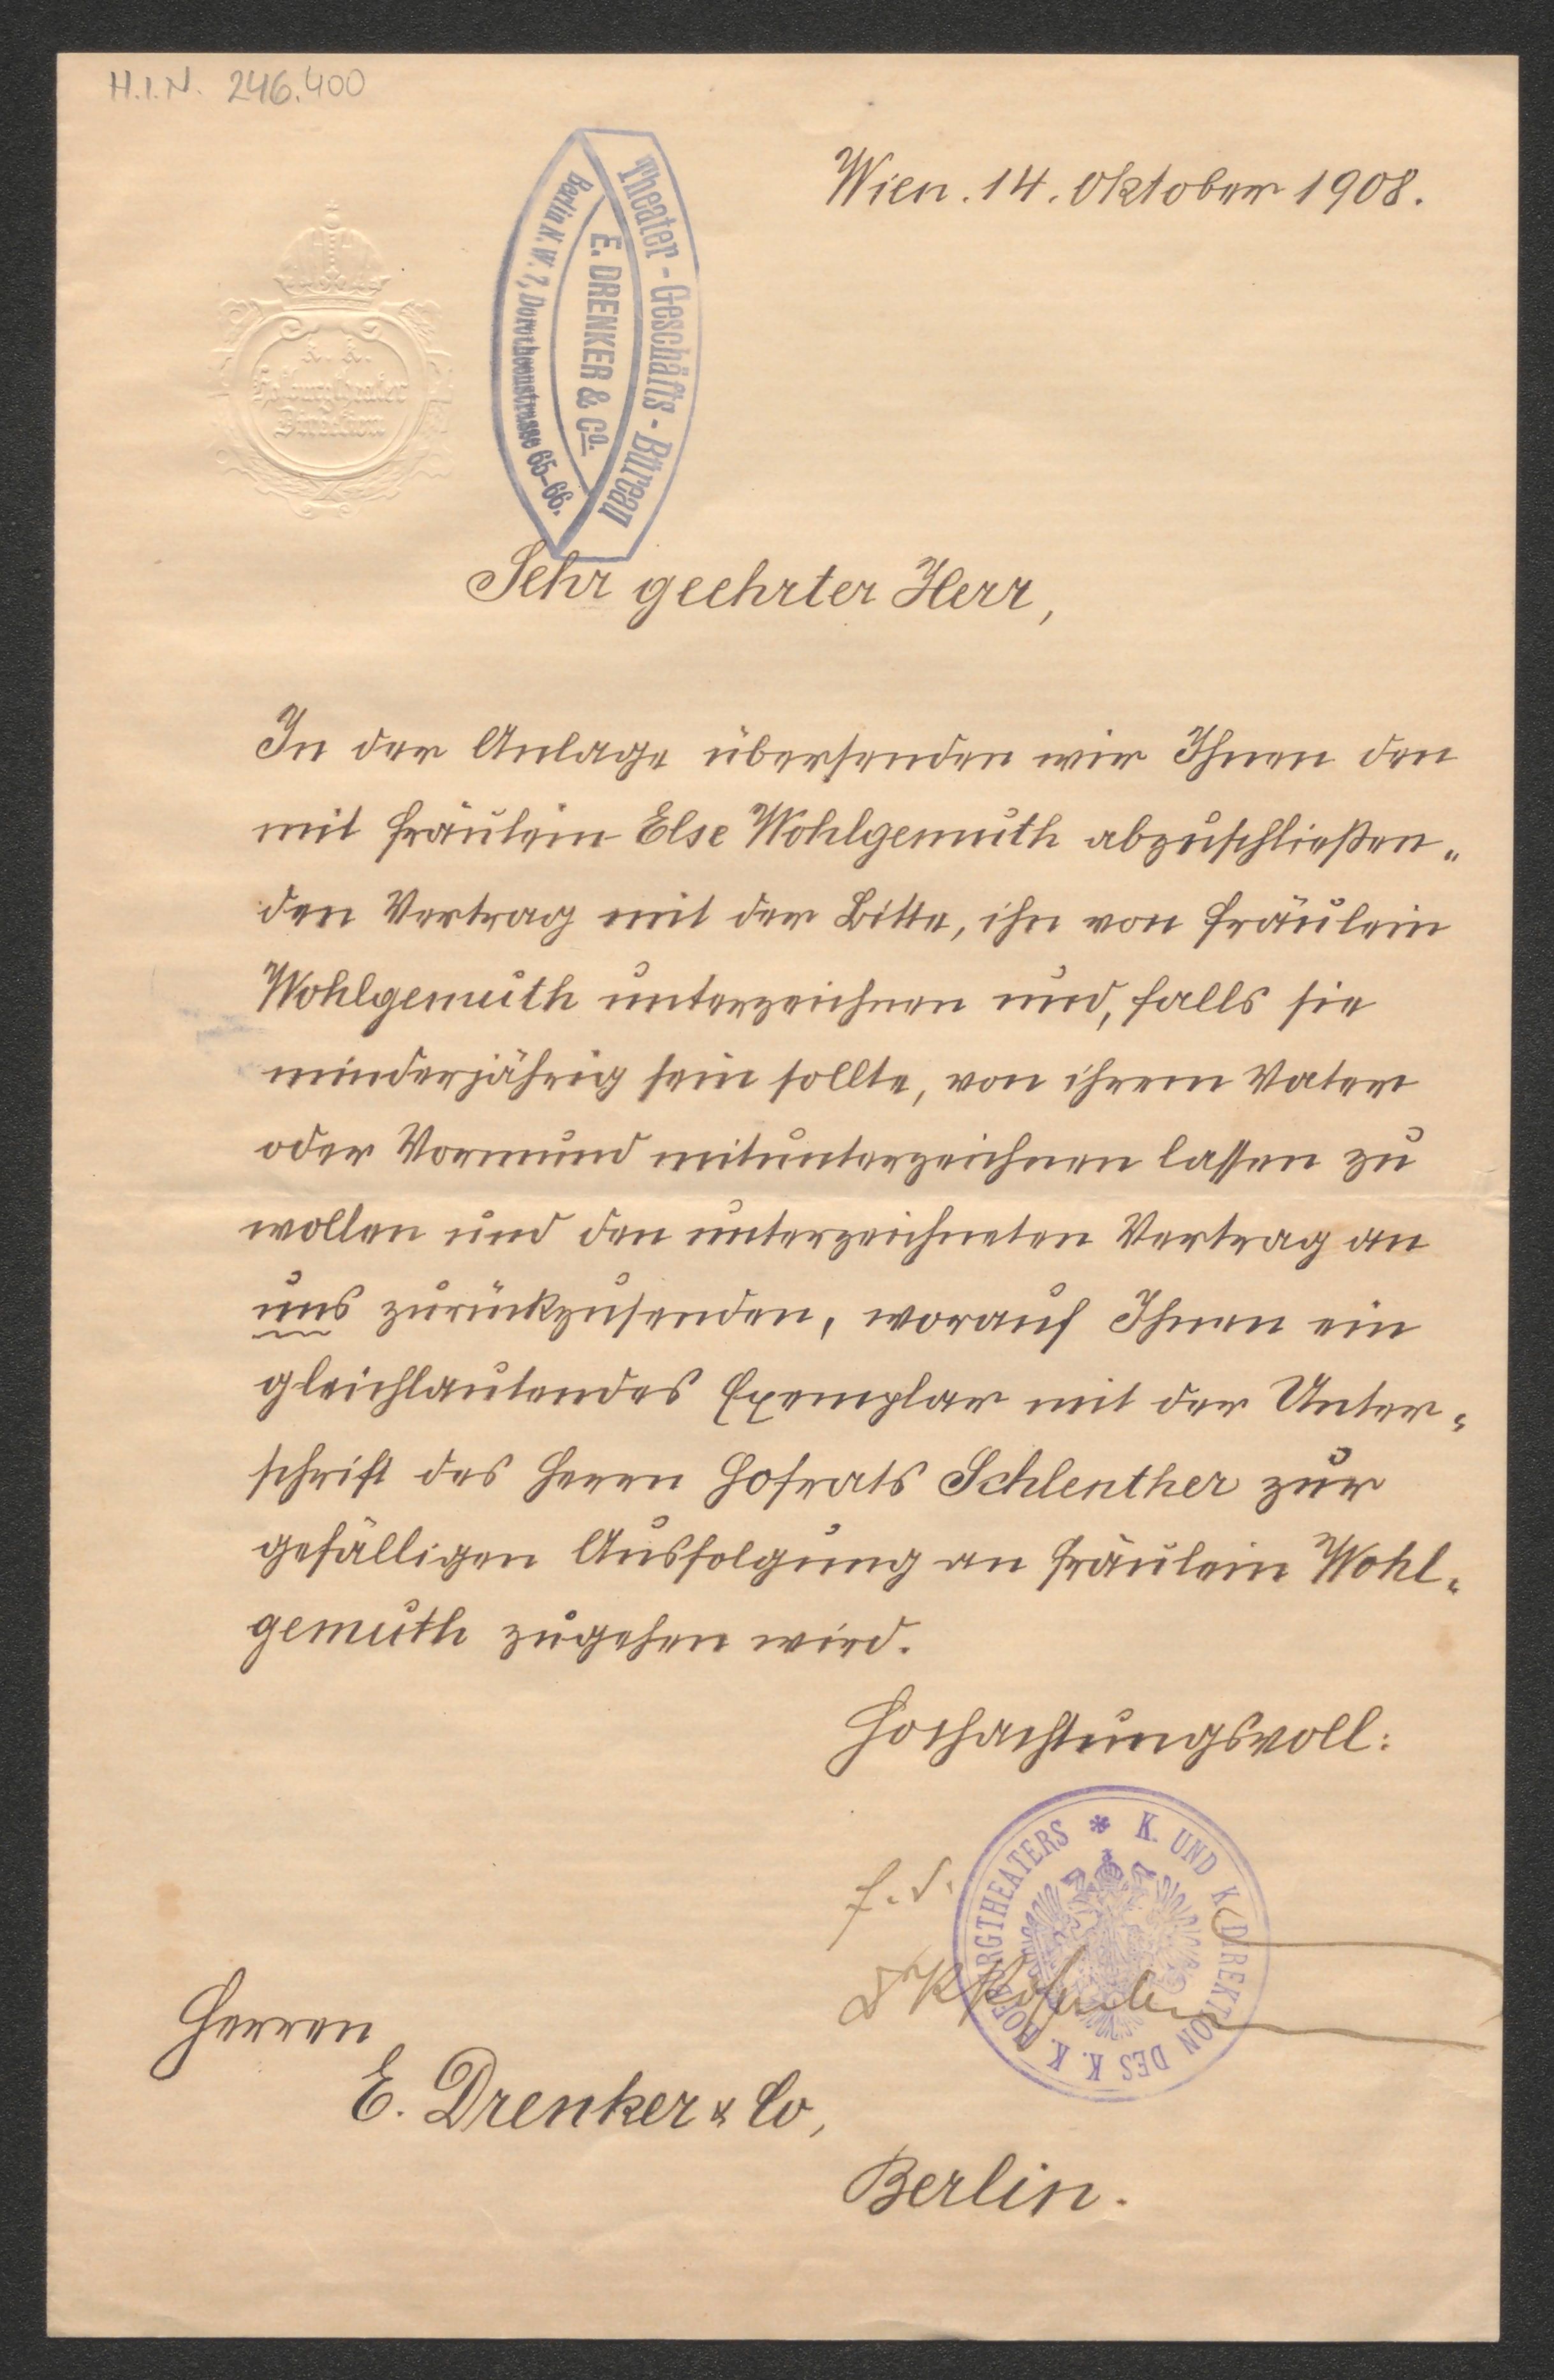 H.I.N. 246.400
Wien. 14. Oktober 1908.
k. k.
Hofburgtheater
Direktion
Theater-Geschäfts-Büreau
E. DRENKER & Co.
Berlin N.W. 7, Dorotheenstrasse 65-66.
Sehr geehrter Herr,
In der Anlage übersenden wir Ihnen den
mit Fräulein Else Wohlgemuth abzuschließen-
den Vertrag mit der Bitte, ihn von Fräulein
Wohlgemuth unterzeichnen und, falls sie
minderjährig sein sollte, von ihrem Vater
oder Vormund mitunterzeichnen lassen zu
wollen und den unterzeichneten Vertrag an
uns zurückzusenden, worauf Ihnen ein
gleichlautendes Exemplar mit der Unter-
schrift des Herrn Hofrats Schlenther zur
gefälligen Ausfolgung an Fräulein Wohl-
gemuth zugehen wird.
Hochachtungsvoll:
K. UND K. DIREKTION DES K. K. HOFBURGTHEATERS *
Herren
E. Drenker & Co,
Berlin.